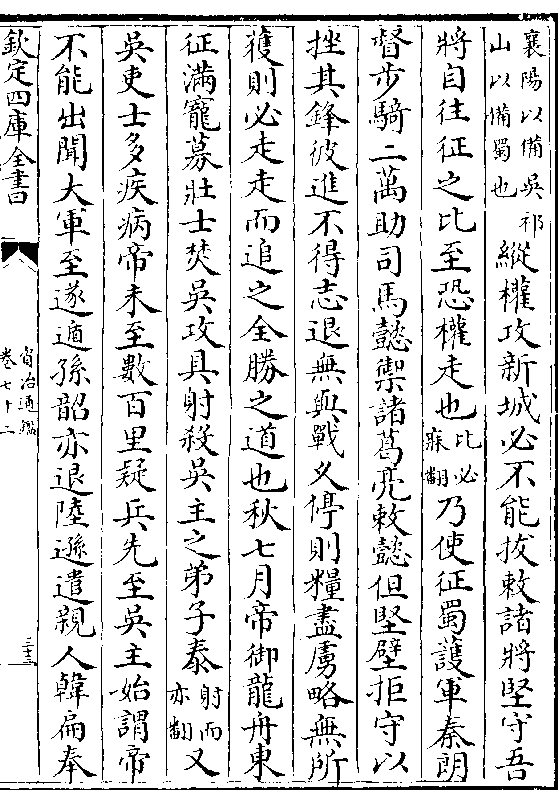 襄陽以備吳祁
山以備蜀也
縱權攻新城必不能拔敕諸將堅守吾
將自往征之比至恐權走也
比必
寐翻
乃使征蜀護軍秦朗
督步騎二萬助司馬懿禦諸葛亮敕懿但堅壁拒守以
挫其鋒彼進不得志退無與戰乆停則糧盡虜略無所
獲則必走走而追之全勝之道也秋七月帝御龍舟東
征滿寵募壯士焚吳攻具射殺吳主之弟子泰
射而
亦翻
又
吳吏士多疾病帝未至數百里疑兵先至吳主始謂帝
不能出聞大軍至遂遁孫韶亦退陸遜遣親人韓扁奉
欽定四庫全書
資治通鑑
卷七十二
三十三